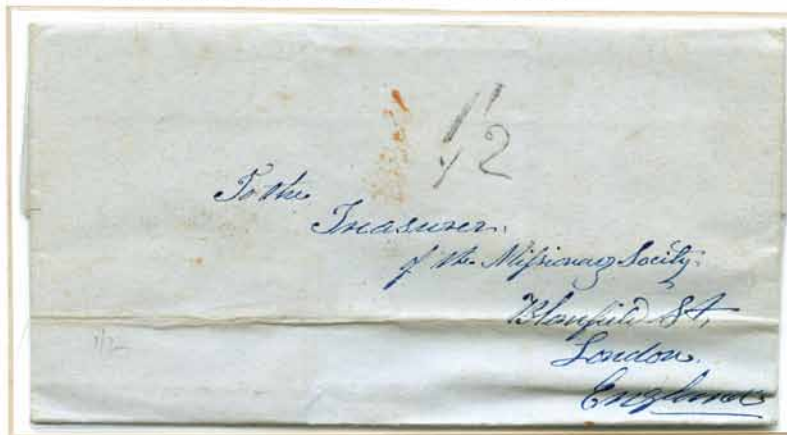 1/2
To the
Treasurer.
of the Missionary Society.
Blomfield St,
London.
England
1/2